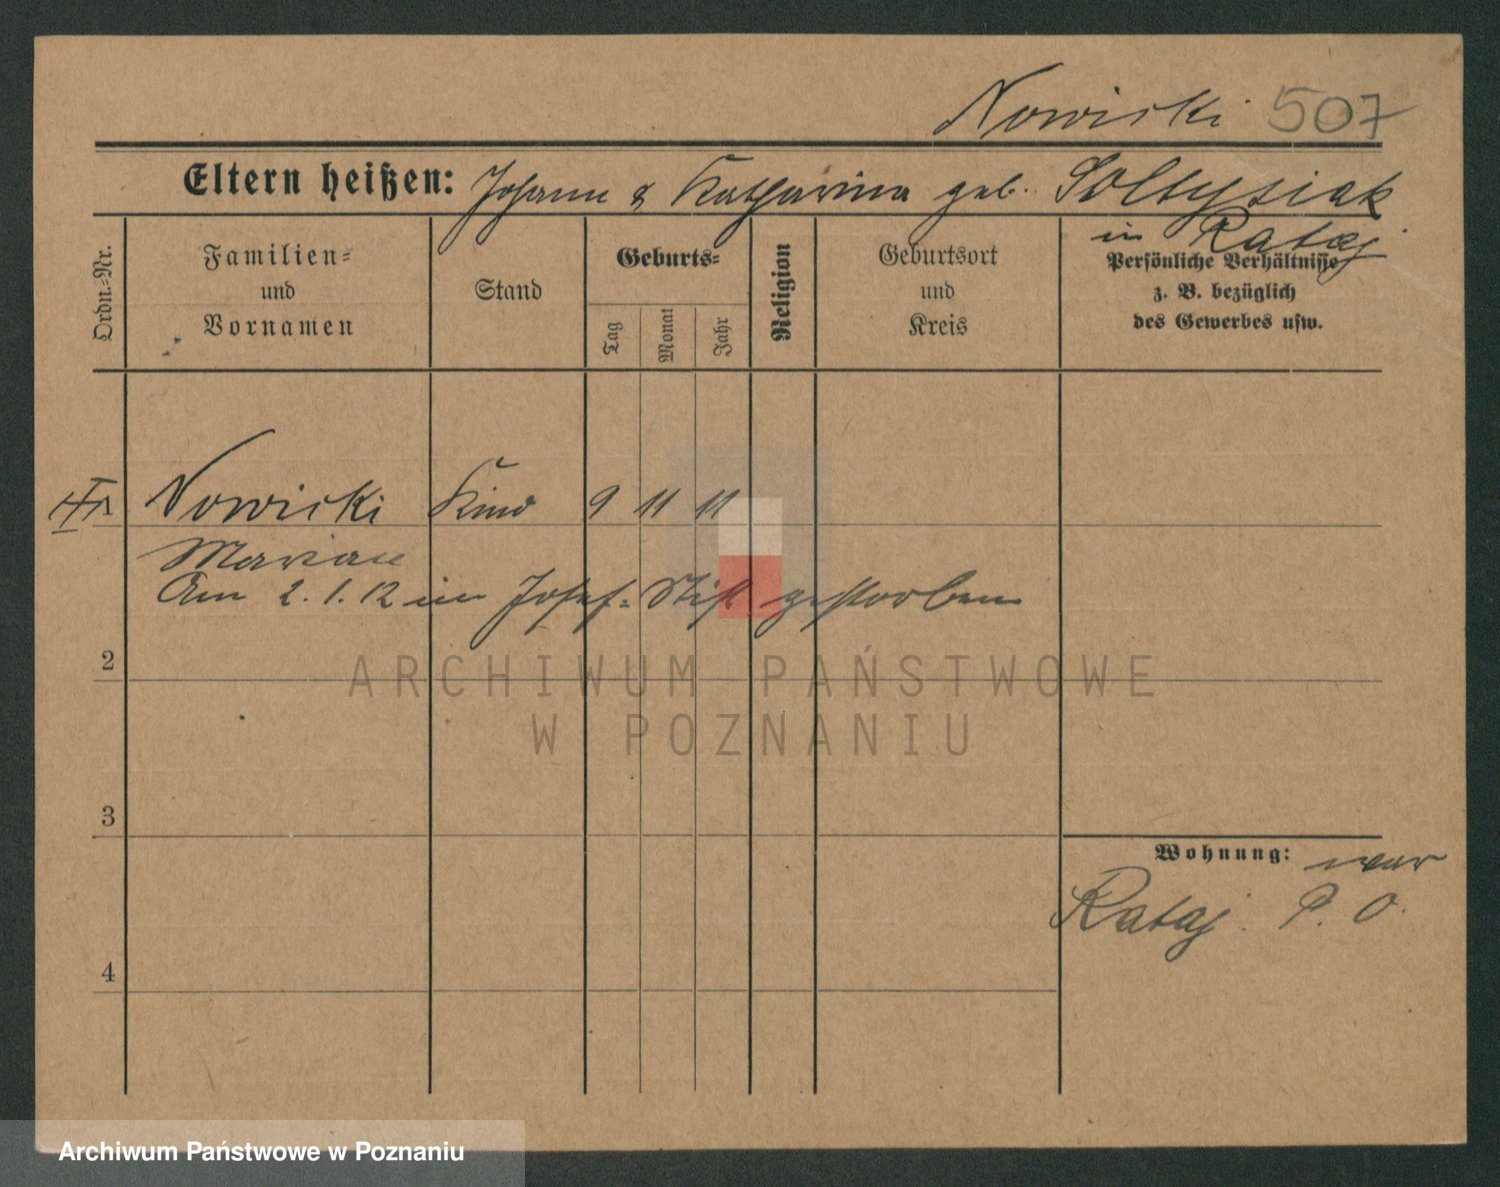 Nowicki 507
Eltern heißen: Johann & Katharina geb. Soltysiak
in Rataj
Ordn.-Nr.
Familien-
und
Vornamen
Stand
Geburts-
Tag
Monat
Jahr
Religion
Geburtsort
und
Kreis
Persönliche Verhältnisse
z. B. bezüglich
des Gewerbes usw.
1 Nowicki Kind 9 11 11
Marian
Am 2. 1. 12 im Josef-Stift gestorben
2
ARCHIWUM PAŃSTWOWE
W POZNANIU
3
Wohnung: war
Rataj P. O.
4
Archiwum Państwowe w Poznaniu